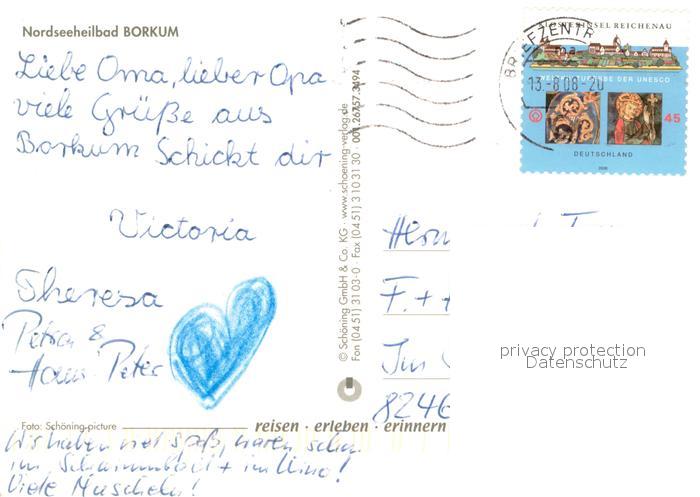 Nordseeheilbad BORKUM
Liebe Oma, lieber Opa
viele Grüße aus
Borkum Schickt dir
Victoria
Theresa
Petra &
Hans Peter
Foto: Schöning-picture
reisen · erleben · erinnern
Wir haben viel Spaß, waren schon
im Schwimmbad + im Kino!
Viele Muscheln!
© Schöning GmbH & Co. KG · www.schoening-verlag.de
Fon (04 51) 31 03-0 · Fax (04 51) 3 10 31 30 · 001.26757.3494
BRIEFZENTR
13.-8.08-20
KLOSTERINSEL REICHENAU
DER UNESCO
45
DEUTSCHLAND
F.
Im
8246
privacy protection
Datenschutz